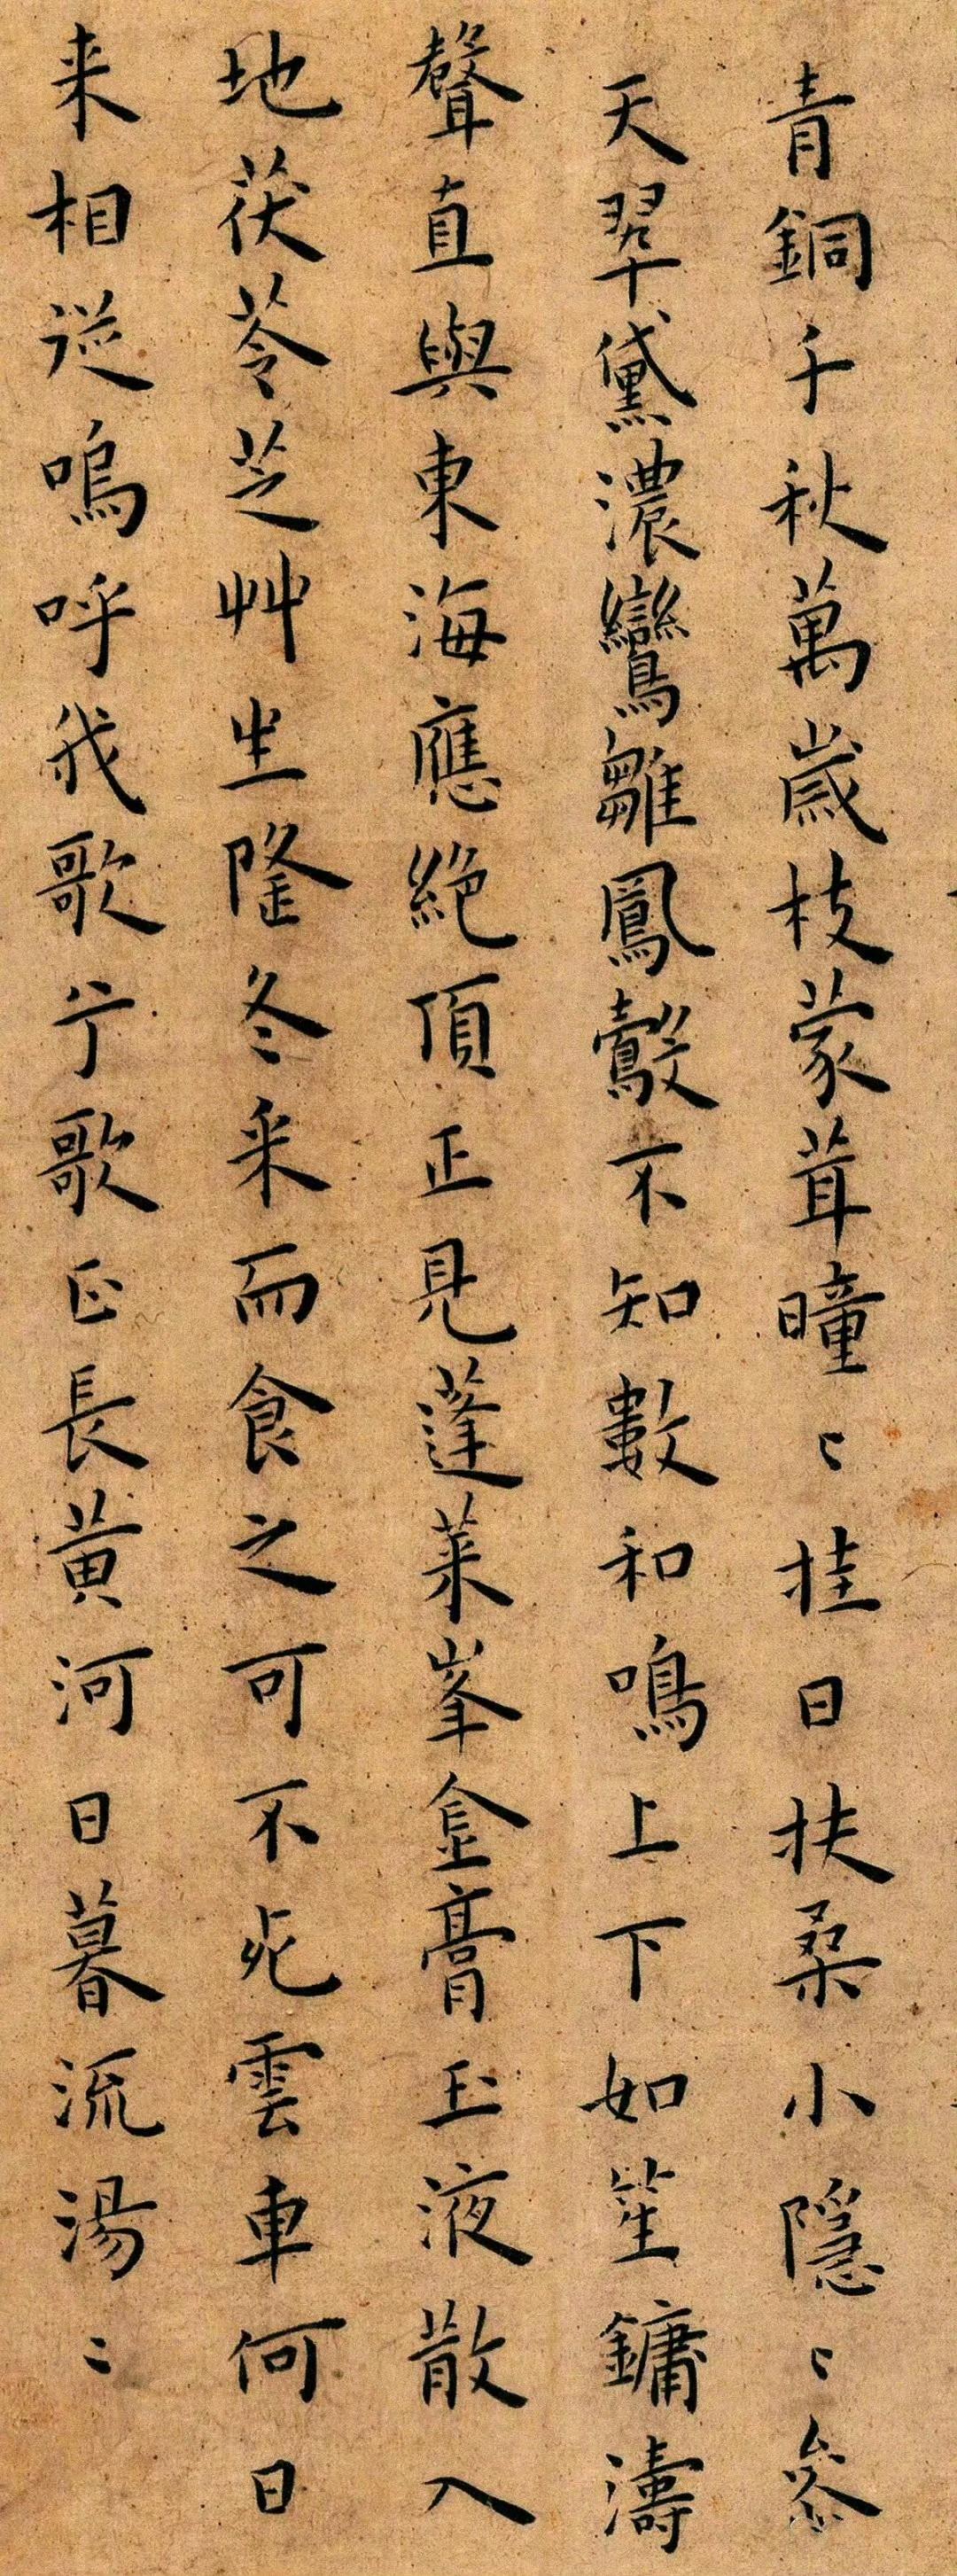 青銅千秋萬歲枝蒙茸曈〻挂日扶桑小隱〻參
天翠黛濃鸞雛鳳鷇不知數和鳴上下如笙鏞濤
聲直與東海應絕頂正見蓬萊峯金膏玉液散入
地茯苓芝艸生隆冬采而食之可不死雲車何日
来相從嗚呼我歌兮歌正長黃河日暮流湯〻